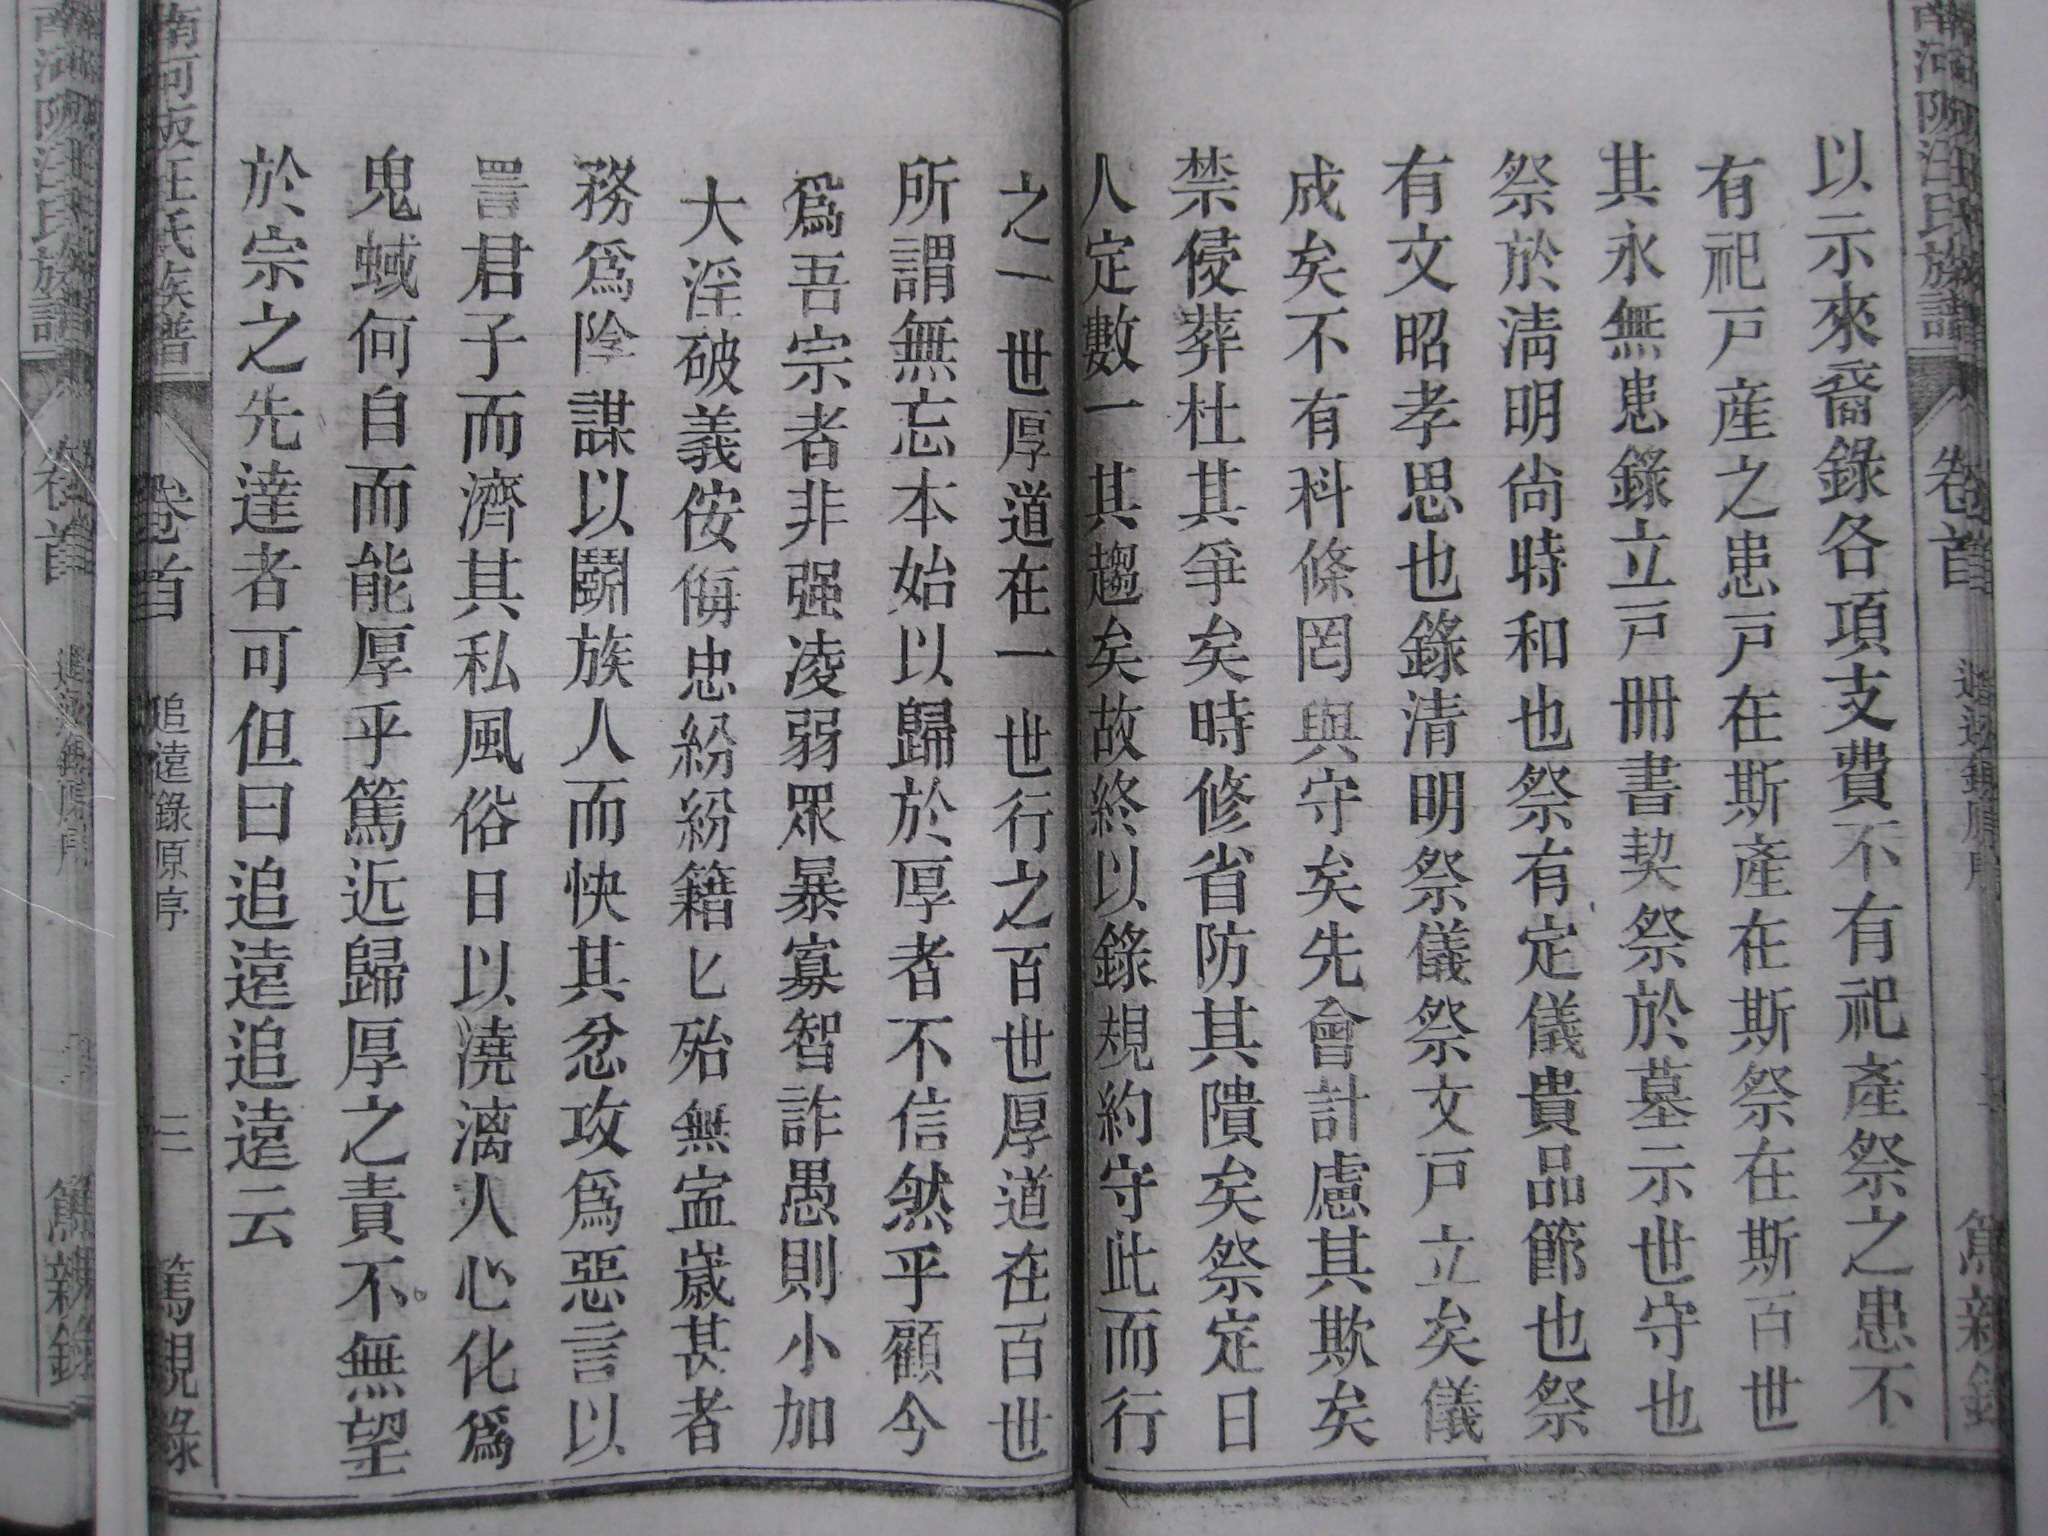 以示來裔錄各項支費不有祀產祭之患不
有祀戸產之患戸在斯產在斯祭在斯百世
其永無患錄立戸册書契祭於墓示世守也
祭於淸明尙時和也祭有定儀貴品節也祭
有文昭孝思也錄清明祭儀祭文戸立矣儀
成矣不有科條罔與守矣先會計慮其欺矣
禁侵葬杜其爭矣時修省防其隤矣祭定日
人定數一其趨矣故終以錄規約守此而行
之一世厚道在一世行之百世厚道在百世
所謂無忘本始以歸於厚者不信然乎顧今
爲吾宗者非强凌弱眾暴寡智詐愚則小加
大淫破義侒侮忠紛紛籍匕殆無寍歲甚者
務爲陰謀以鬭族人而快其忿攻爲惡言以
詈君子而濟其私風俗日以澆漓人心化爲
鬼蜮何自而能厚乎篤近歸厚之責不無望
於宗之先達者可但曰追遠追遠云
南河陂汪氏族譜
卷首
追遠錄原序
三
篤親錄